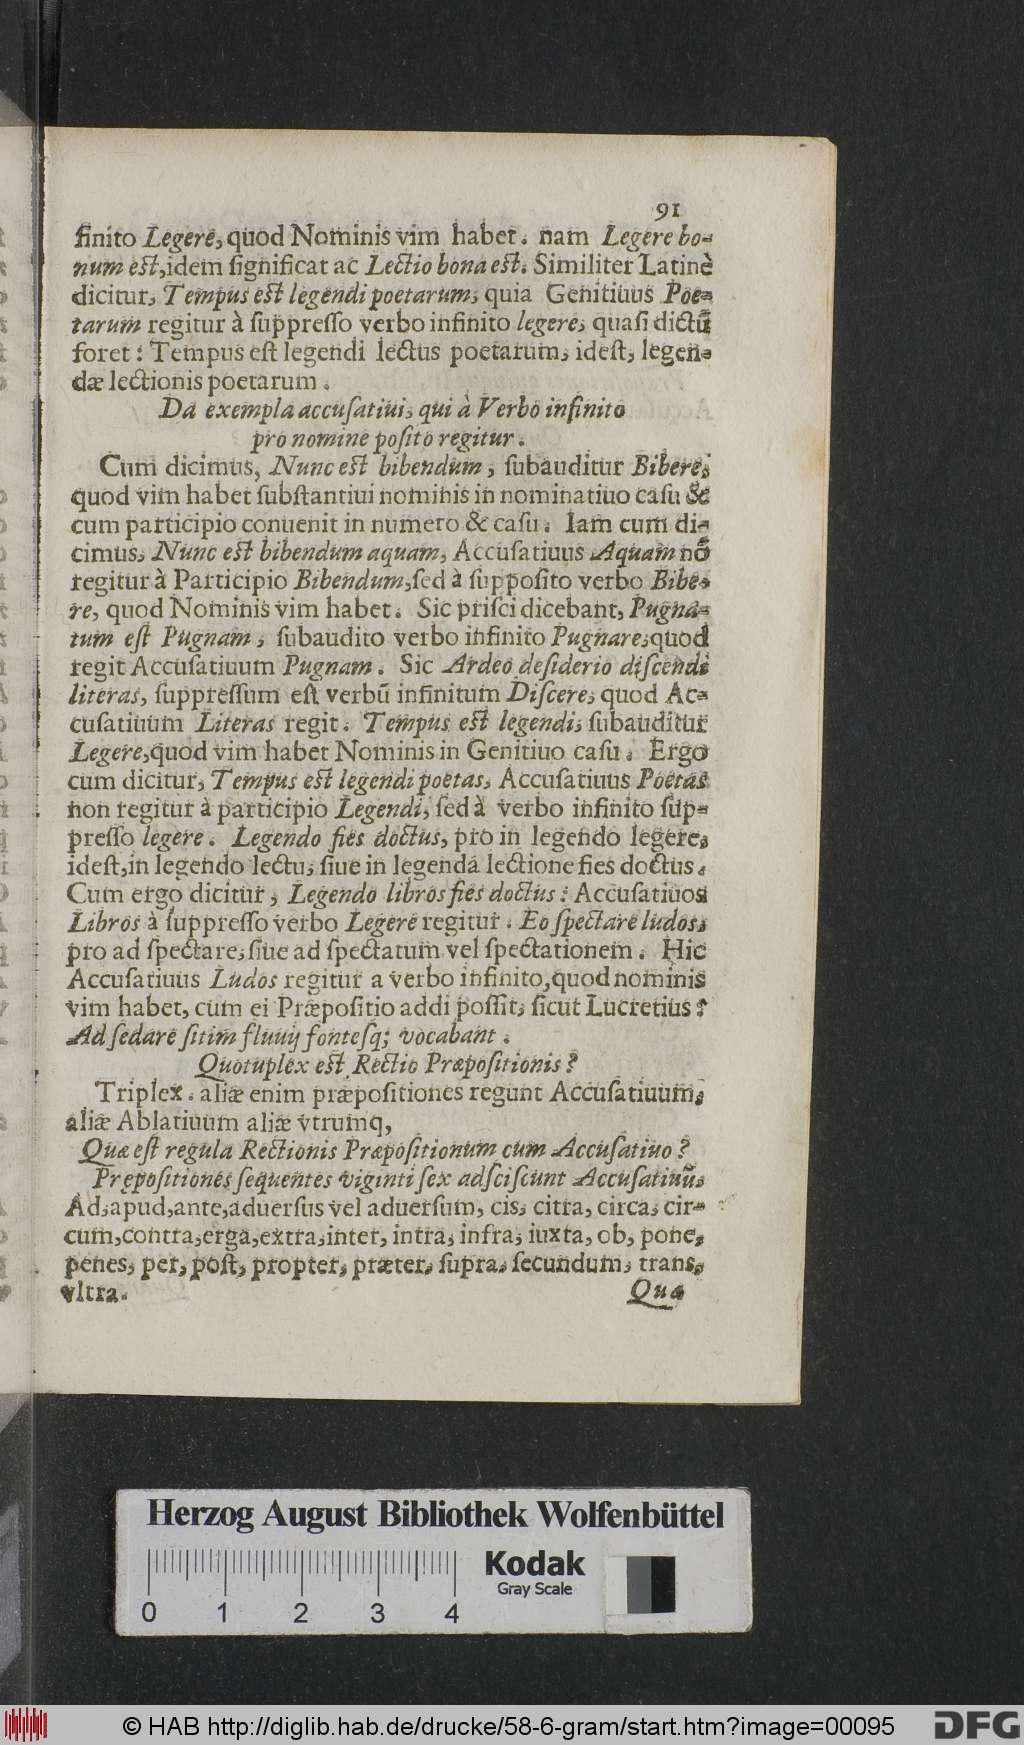 91
finito Legere, quod Nominis vim habet. nam Legere bo-
num est, idem significat ac Lectio bona est. Similiter Latinè
dicitur, Tempus est legendi poetarum, quia Genitiuus Poe-
tarum regitur à suppresso verbo infinito legere, quasi dictũ
foret: Tempus est legendi lectus poetarum, idest, legen-
dæ lectionis poetarum.
Da exempla accusatiui, qui à Verbo infinito
pro nomine posito regitur.
Cum dicimus, Nunc est bibendum, subauditur Bibere,
quod vim habet substantiui nominis in nominatiuo casu &
cum participio conuenit in numero & casu. Iam cum di-
cimus, Nunc est bibendum aquam, Accusatiuus Aquam nõ
regitur à Participio Bibendum, sed à supposito verbo Bibe-
re, quod Nominis vim habet. Sic prisci dicebant, Pugna-
tum est Pugnam, subaudito verbo infinito Pugnare, quod
regit Accusatiuum Pugnam. Sic Ardeo desiderio discendi
literas, suppressum est verbũ infinitum Discere, quod Ac-
cusatiuum Literas regit. Tempus est legendi, subauditur
Legere, quod vim habet Nominis in Genitiuo casu. Ergo
cum dicitur, Tempus est legendi poetas, Accusatiuus Poetas
non regitur à participio Legendi, sed à verbo infinito sup-
presso legere. Legendo fies doctus, pro in legendo legere,
idest, in legendo lectu, siue in legenda lectione fies doctus.
Cum ergo dicitur, Legendo libros fies doctus: Accusatiuos
Libros à suppresso verbo Legere regitur. Eo spectare ludos,
pro ad spectare, siue ad spectatum vel spectationem. Hic
Accusatiuus Ludos regitur a verbo infinito, quod nominis
vim habet, cum ei Præpositio addi possit, sicut Lucretius:
Ad sedare sitim fluuij fontesq; vocabant.
Quotuplex est Rectio Præpositionis?
Triplex. aliæ enim præpositiones regunt Accusatiuum,
aliæ Ablatiuum aliæ vtrumq,
Quæ est regula Rectionis Præpositionum cum Accusatiuo?
Prępositiones sequentes viginti sex adsciscunt Accusatiuũ.
Ad, apud, ante, aduersus vel aduersum, cis, citra, circa, cir-
cum, contra, erga, extra, inter, intra, infra, iuxta, ob, pone,
penes, per, post, propter, præter, supra, secundum, trans,
vltra.
Quæ
Herzog August Bibliothek Wolfenbüttel
Kodak
Gray Scale
0 1 2 3 4
© HAB http://diglib.hab.de/drucke/58-6-gram/start.htm?image=00095
DFG